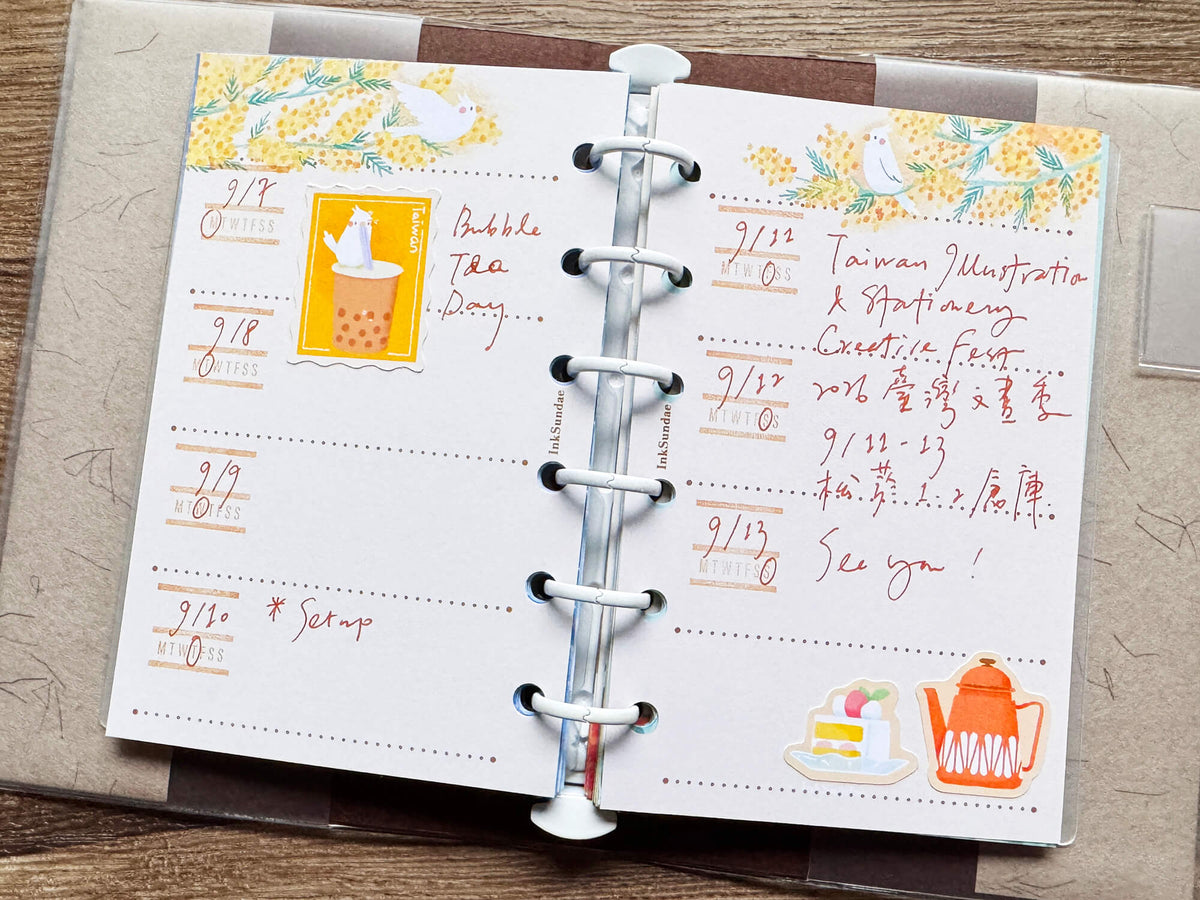 9/7
MTWTFSS
Taiwan
Bubble
Tea
Day
9/8
MTWTFSS
9/9
MTWTFSS
9/10
MTWTFSS
* Setup
InkSundae
InkSundae
9/11
MTWTFSS
Taiwan Illustration
& Stationery
Creative Fest
9/12
MTWTFSS
2026 臺灣文畫季
9/11-13
松菸 1.2 倉庫
9/13
MTWTFSS
See you!